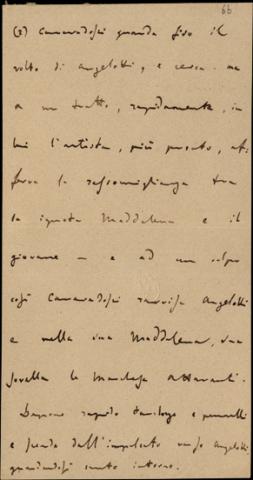 66
(3) Cavaradossi guarda fiso il
volto di Angelotti, e cerca. ma
a un tratto, rapidamente, in
lui l'artista, più pronto, af-
ferra la rassomiglianza tra
la ignota Maddalena e il
giovane – e ad un colpo
così Cavaradossi ravvisa Angelotti
e nella sua Maddalena, sua
sorella la Marchesa Attavanti.
Depone rapido tavolozza e pennelli
e scende dall'impalcato verso Angelotti
guardandosi cauto intorno.